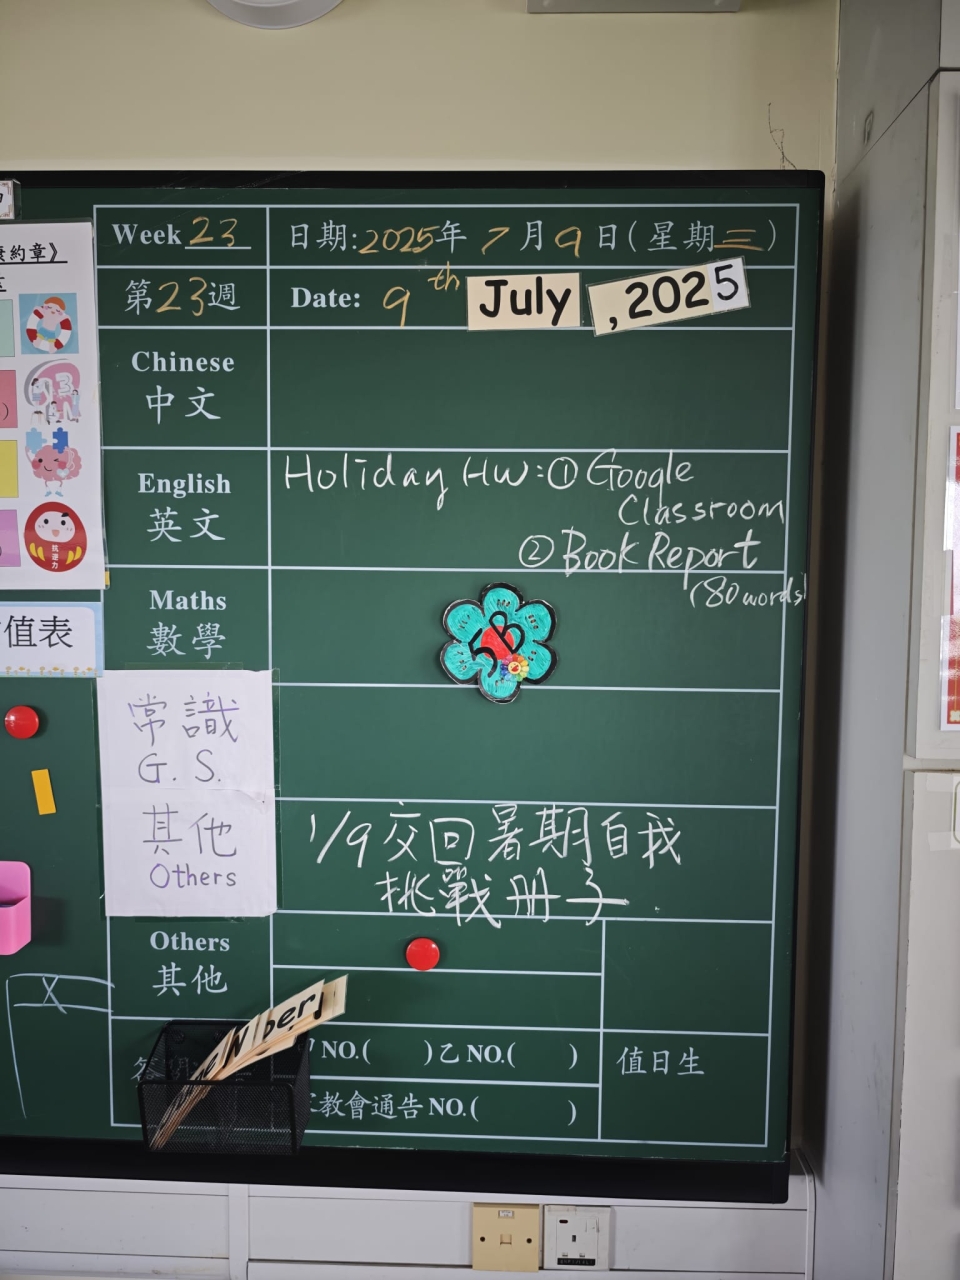 Week 23
日期:2025年7月9日(星期三)
第23週
Date: 9th July ,2025
Chinese
中文
English
英文
Holiday HW:① Google
Classroom
② Book Report
(80 words)
Maths
數學
5B
常識
G. S.
其他
Others
1/9交回暑期自我
挑戰冊子
Others
其他
NO.( )乙NO.( )
值日生
教會通告NO.( )
約章》
抗逆力
值表
X